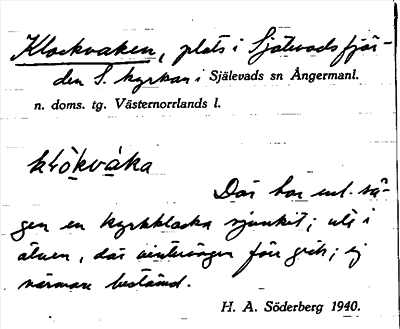 Klockvaken, plats i Själevadsfjär-
den S. kyrkan i Själevads sn Ångermanl.
n. doms. tg. Västernorrlands l.
klòkvàka
Där har enl. sä-
gen en kyrkklocka sjunkit; ute i
älven, där vintervägen förr gick; ej
närmare bestämd.
H. A. Söderberg 1940.